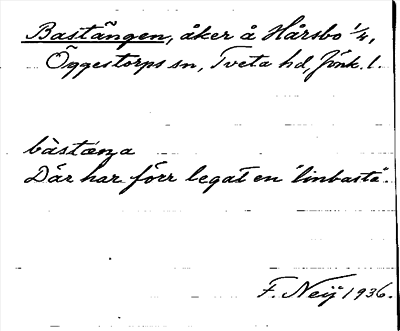 Bastängen, åker å Hårsbo 1/4,
Öggestorps sn, Tveta hd, Jönk. l.
bàstæŋa
Där har förr legat en "linbasta".
F. Neij 1936.